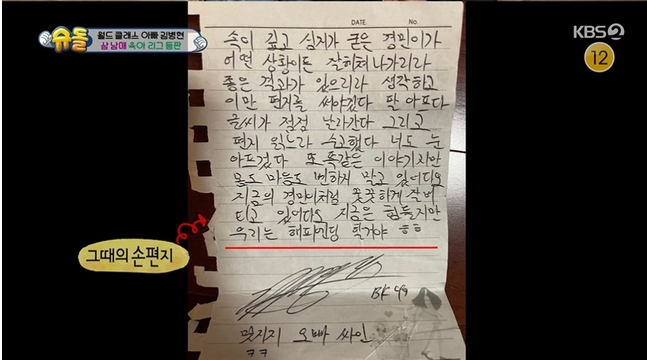 슈돌
월드 클래스 아빠 김병현
삼 남매 육아 리그 등판
KBS2
12
DATE
NO.
속이 깊고 심지가 굳은 경민이가
어떤 상황이든 잘헤쳐나가리라
좋은 결과가 있으리라 생각하고
이만 편지를 써야겠다 팔 아프다
글씨가 점점 날라간다 그리고
편지 읽느라 수고했다 너도 눈
아프겠다 또 똑같은 이야기지만
몸도 마음도 변하지 말고 있어다오
지금의 경민이처럼 꿋꿋하게 잘 버
티고 있어다오 지금은 힘들지만
우리는 해피엔딩 할거야 ㅎㅎ
그때의 손편지
BK 49
멋지지 오빠 싸인
ㅋㅋ